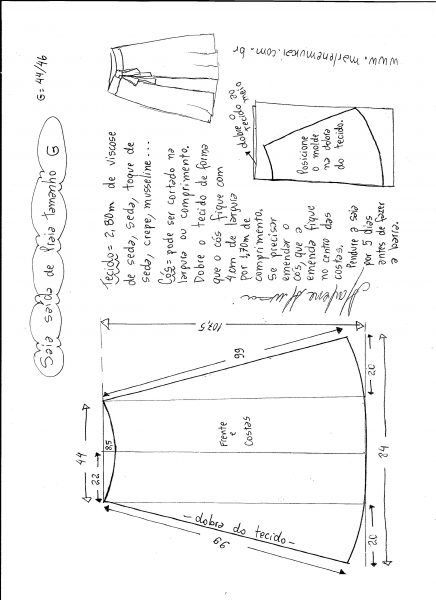 Saia saída de Praia tamanho G
G = 44/46
Tecido = 2,80m de viscose
de seda, seda, toque de
seda, crepe, musseline...
Cós = pode ser cortado na
largura ou comprimento.
Dobre o tecido de forma
que o cós fique com
4cm de largura
por 1,70m de
comprimento.
Se precisar
emendar o
cós, que a
emenda fique
no centro das
costas.
Pendure a saia
por 5 dias
antes de fazer
a barra.
www.marlenemukai.com.br
dobre o
tecido ao
meio
Posicione
o molde
na dobra
do tecido.
Marlene Mukai
44
22
8,5
107,5
99
Frente
e
Costas
-dobra do tecido-
99
20
84
20